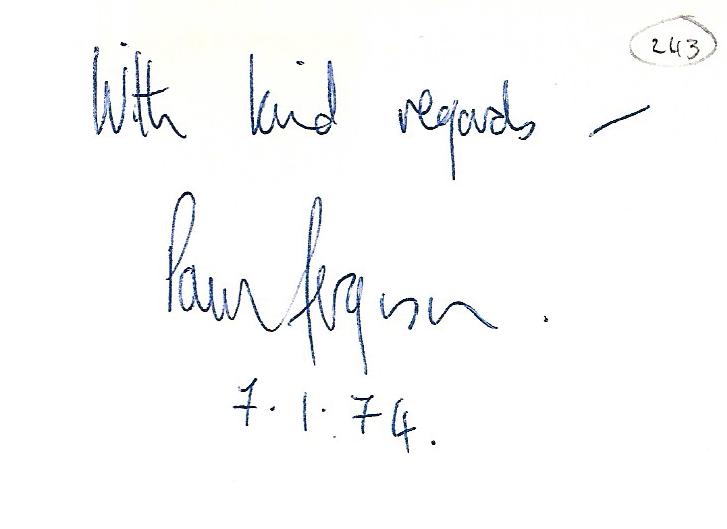 243
With kind regards –
Ferguson.
7.1.74.